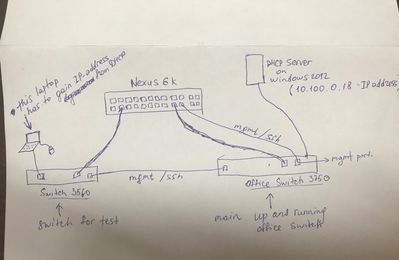 this laptop
has to gain IP-address
from DHCP
Nexus 6k
DHCP Server
on
Windows 2012
(10.100.0.18 - IP address)
mgmt/ssh
mgmt port.
Switch 3560
mgmt/ssh
Office Switch 3750
switch for test
main up and running
office switch